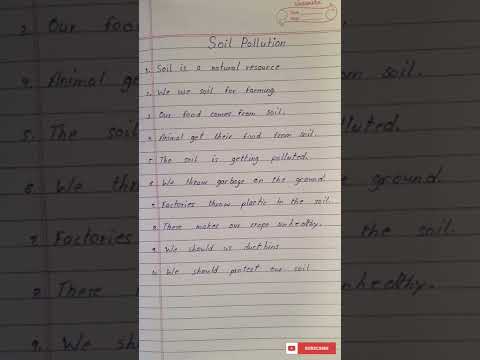 Soil Pollution
1. Soil is a natural resource
2. We use soil for farming.
3. Our food comes from soil.
4. Animal get their food from soil.
5. The soil is getting polluted.
6. We throw garbage on the ground.
7. Factories throw plastic in the soil.
8. These makes our crops unhealthy.
9. We should us dustbins
10. We should protect our soil
SUBSCRIBE